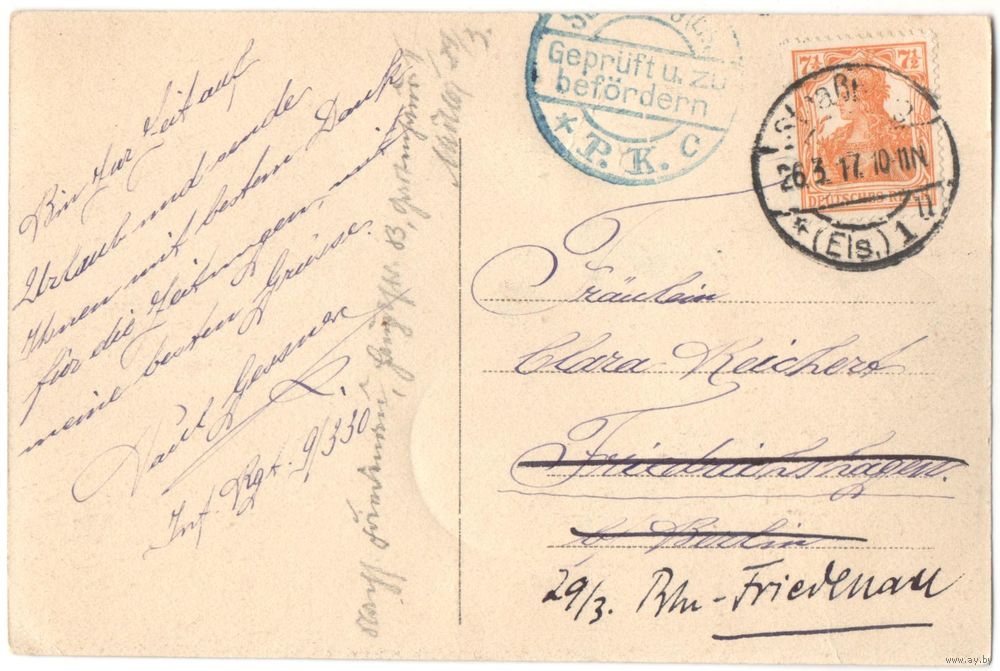 Bin zur Zeit auf
Urlaub und sende
Ihnen mit besten Dank
für die Zeitungen, mit
meine besten Grüsse.
Paul Gessner
Inf. Rgt. 9/330
Geprüft u. zu
befördern
* P. K. C
7½ 7½
DEUTSCHES R
26.3.17. 10-11N
* (Els.) 1 n
Fräulein
Clara Reichert
Friedrichshagen.
b/ Berlin
29/3. Bln-Friedenau
www.ay.by